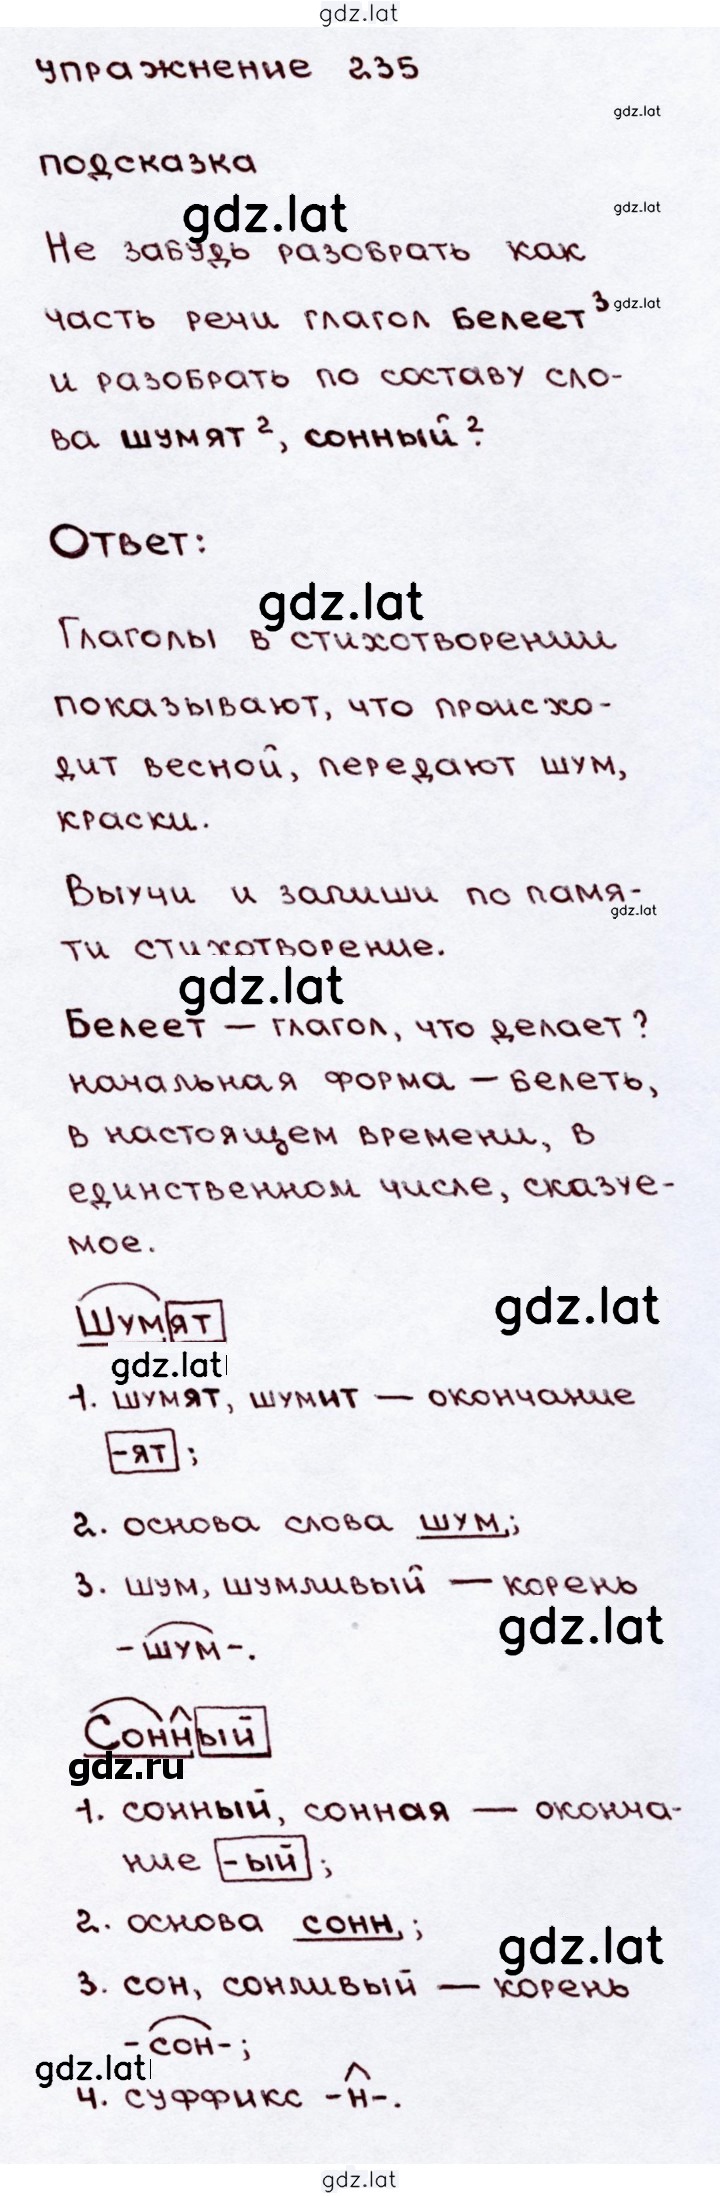 gdz.lat
упражнение 235
gdz.lat
подсказка
gdz.lat
gdz.lat
Не забудь разобрать как
часть речи глагол белеет³
gdz.lat
и разобрать по составу сло-
ва шумят², сонный².
Ответ:
gdz.lat
Глаголы в стихотворении
показывают, что происхо-
дит весной, передают шум,
краски.
Выучи и запиши по памя-
gdz.lat
ти стихотворение.
gdz.lat
Белеет — глагол, что делает?
начальная форма — белеть,
в настоящем времени, в
единственном числе, сказуе-
мое.
gdz.lat
Шумят
gdz.lat
1. шумят, шумит — окончание
-ят ;
2. основа слова шум;
3. шум, шумливый — корень
gdz.lat
-шум-.
Сонный
gdz.ru
1. сонный, сонная — оконча-
ние -ый ;
2. основа сонн ;
gdz.lat
3. сон, сонливый — корень
-сон-;
gdz.lat
4. суффикс -н-.
gdz.lat